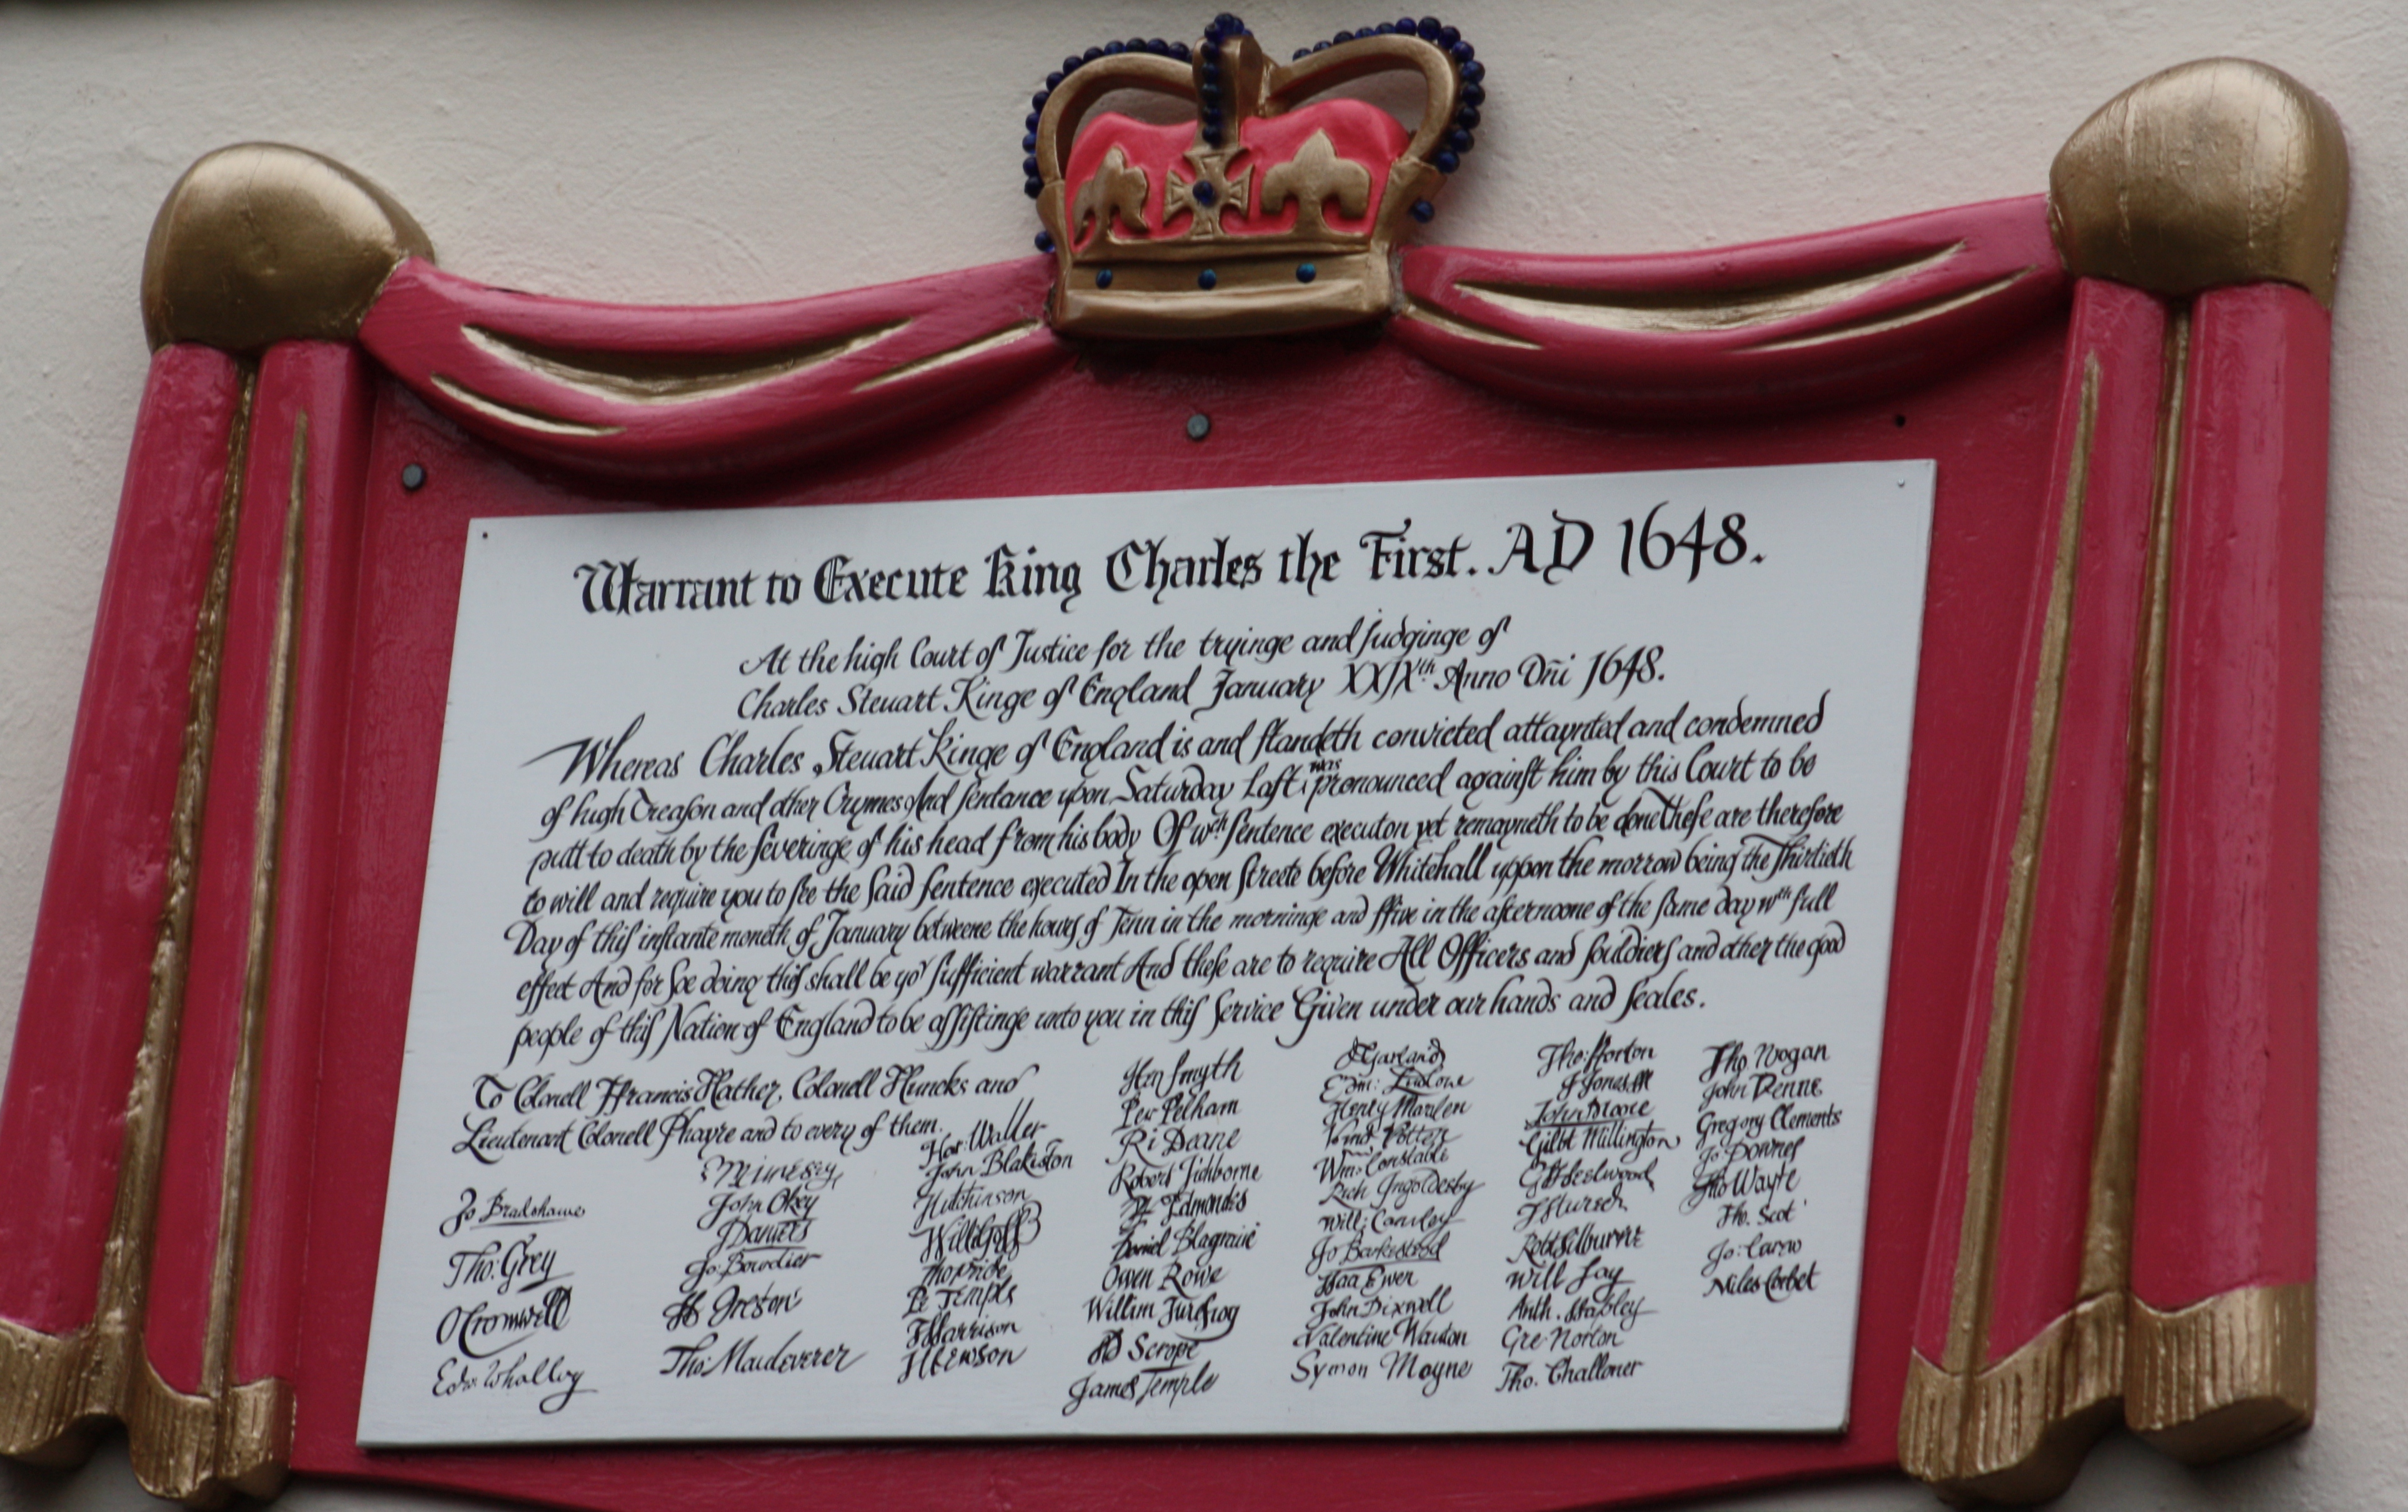 Warrant to Execute King Charles the First. AD 1648.
At the high Court of Justice for the tryinge and judginge of
Charles Steuart Kinge of England January XXIXth Anno Dñi 1648.
Whereas Charles Steuart Kinge of England is and standeth convicted attaynted and condemned
of high Treason and other Crymes And sentance upon Saturday last was pronounced against him by this Court to be
putt to death by the severinge of his head from his body Of wch sentence executon yet remayneth to be done these are therefore
to will and require you to see the said sentence executed In the open Streete before Whitehall uppon the morrow being the Thirtieth
Day of this instante moneth of January betweene the hours of Tenn in the morninge and ffive in the afternoone of the same day wth full
effect And for soe doing this shall be yor sufficient warrant And these are to require All Officers and souldiers and other the good
people of this Nation of England to be assistinge unto you in this Service Given under our hands and seales.
To Colonell Ffrancis Hacher, Colonell Huncks and
Lieutenant Colonell Phayre and to every of them.
Jo Bradshawe
Tho: Grey
O Cromwell
Edw: Whalley
John Okey
J Danvers
Jo: Bourchier
H Ireton
Tho: Mauleverer
Har: Waller
John Blakiston
J Hutchinson
Willi Goff
Tho Pride
Pe Temple
T Harrison
J Hewson
Hen Smyth
Per Pelham
Ri Deane
Robert Tichborne
H Edmondes
Daniel Blagrave
Owen Rowe
Willim Purefroy
Ad Scrope
James Temple
A Garland
Edm: Ludlowe
Henry Marten
Vinct Potter
Wm: Constable
Rich Ingoldesby
Will: Cawley
Jo Barkestead
Isaa Ewer
John Dixwell
Valentine Wauton
Symon Mayne
Tho: Horton
J Jones
John Moore
Gilbt Millington
G Fleetwood
J Alured
Robt Lilburne
Will Say
Anth. Stapley
Gre Norton
Tho. Challoner
Tho Wogan
John Venne
Gregory Clements
Jo Downes
Tho Wayte
Tho. Scot
Jo: Carew
Miles Corbet